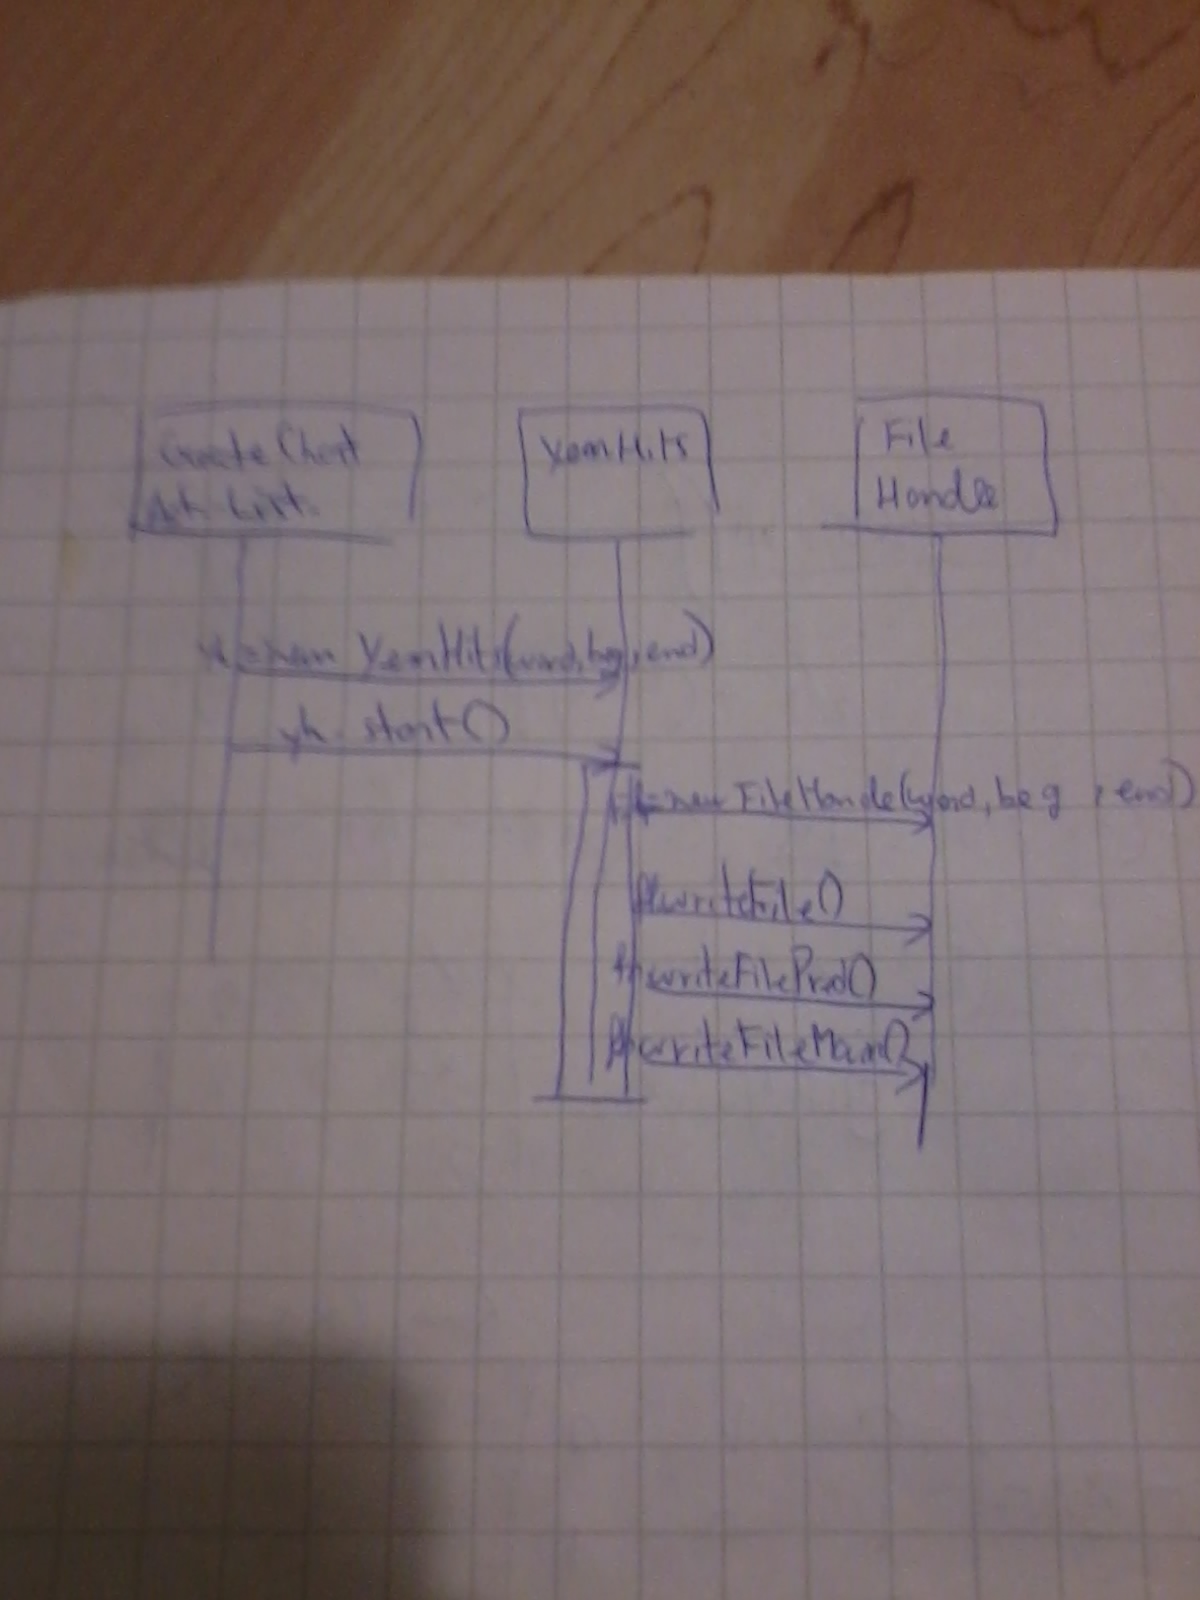 Create Chart
Act List
YomHits
File
Handle
yh=new YomHits(word,beg,end)
yh.start()
fh=new FileHandle(word,beg,end)
fh.writeFile()
fh.writeFilePred()
fh.writeFileMain()